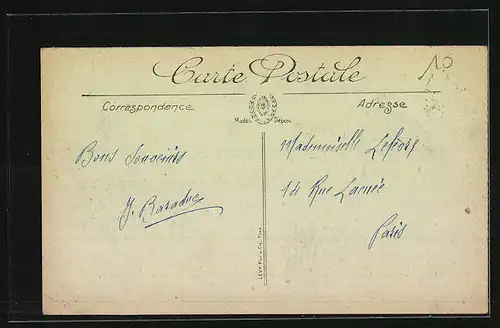 Carte Postale
10
Correspondance
Adresse
Modèle Déposé
Bons Souvenirs
J. Baraduc
Mademoiselle
14 Rue
Paris
LEVY Fils & Cie, Paris